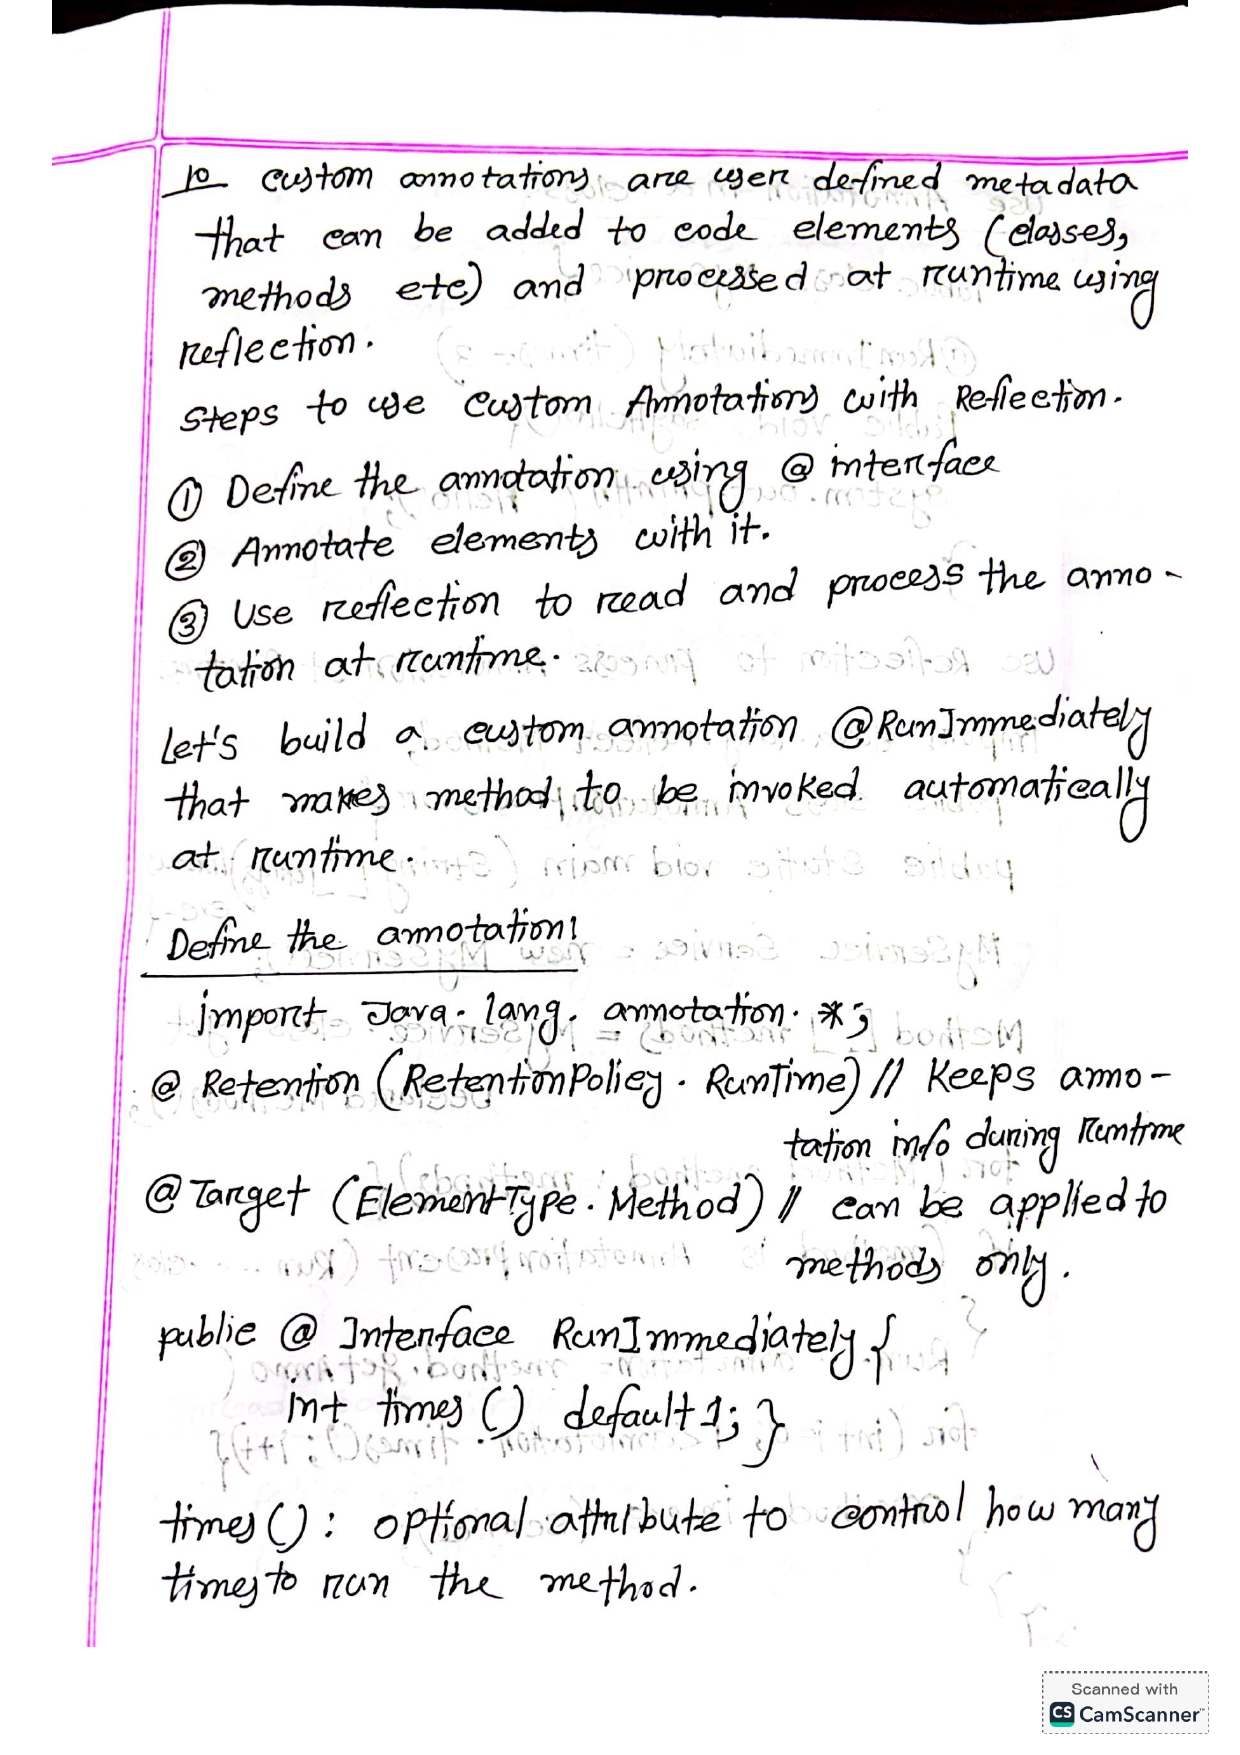 10 custom annotations are user defined metadata
that can be added to code elements (classes,
methods etc) and processed at runtime using
reflection.
steps to use custom Annotations with Reflection.
① Define the annotation using @ interface
② Annotate elements with it.
③ Use reflection to read and process the anno-
tation at runtime.
Let's build a custom annotation @RunImmediately
that makes method to be invoked automatically
at runtime.
Define the annotation:
import Java.lang.annotation.*;
@ Retention (RetentionPolicy.RunTime) // Keeps anno-
tation info during Runtime
@ Target (ElementType.Method) // can be applied to
methods only.
public @ Interface RunImmediately {
int times () default 1; }
times () : optional attribute to control how many
times to run the method.
Scanned with
CS CamScanner